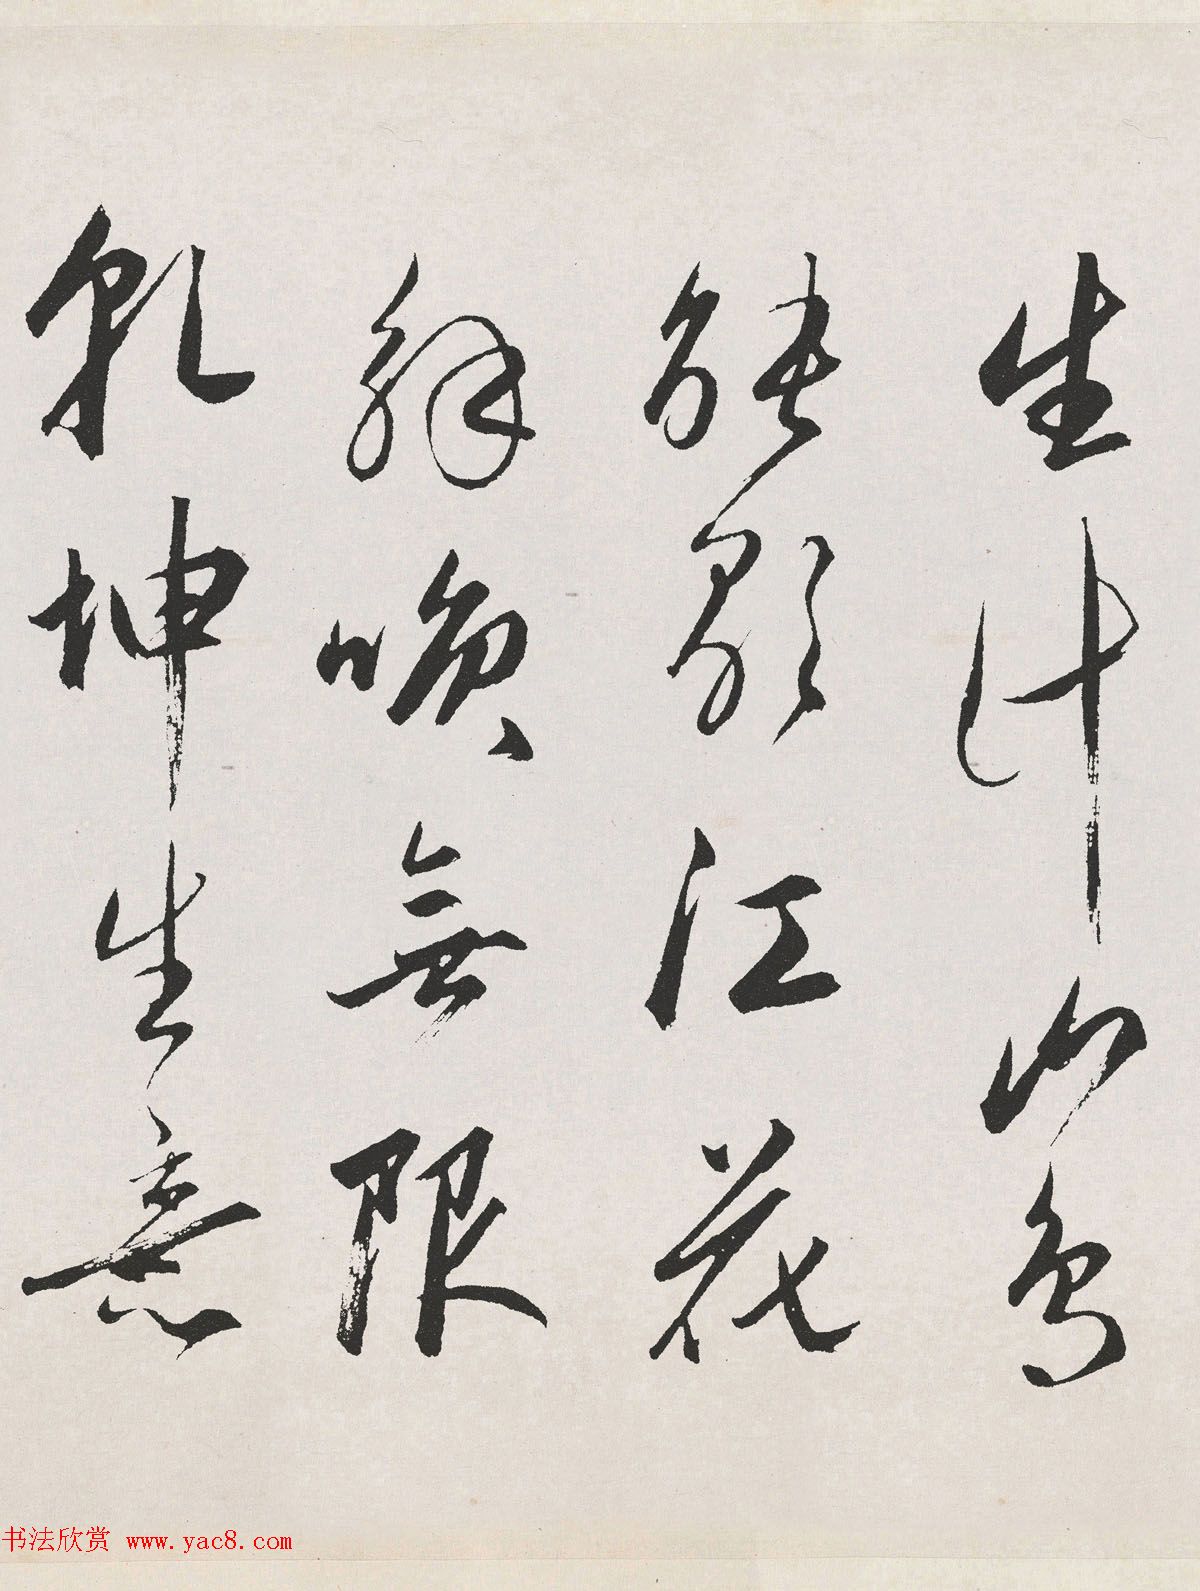 生计山鸟
能歌江花
解唤無限
乾坤生意
书法欣赏 www.yac8.com